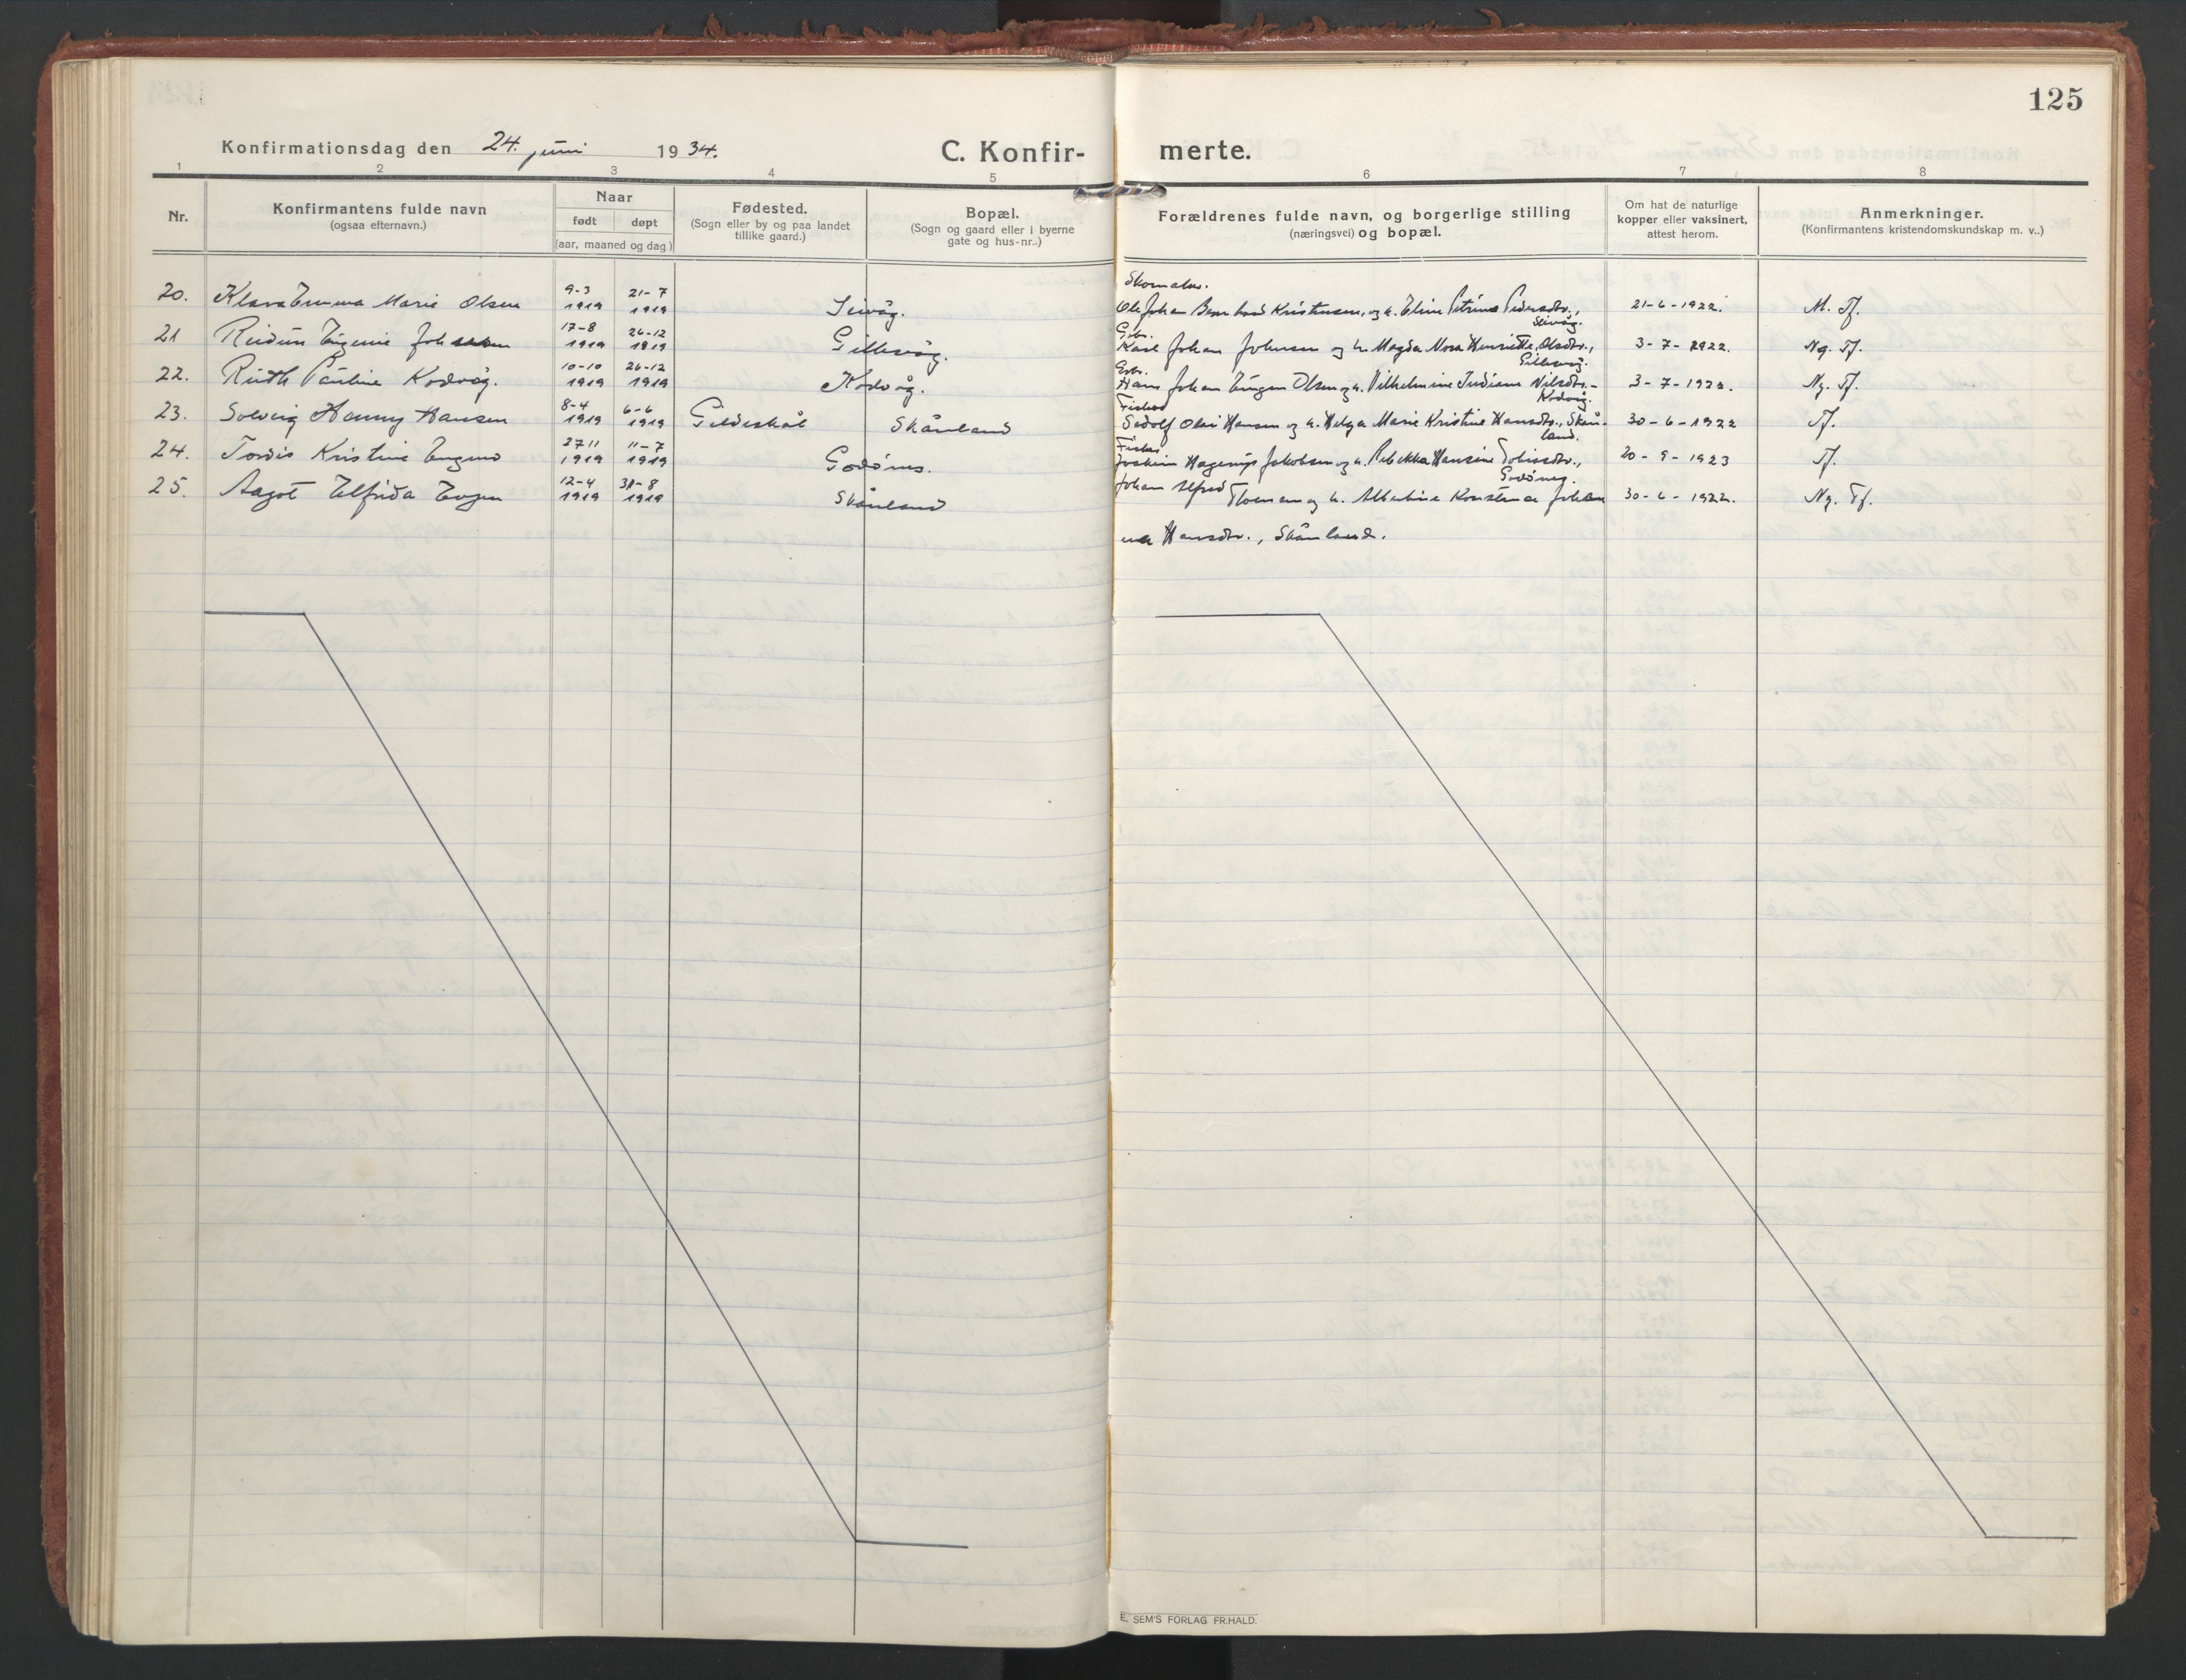 125
Konfirmationsdag den 24. juni 1934.
C. Konfir- merte.
1 2 3 4 5 6 7 8
Nr.
Konfirmantens fulde navn
(ogsaa efternavn.)
Naar
født døpt
(aar, maaned og dag.)
Fødested.
(Sogn eller by og paa landet
tillike gaard.)
Bopæl.
(Sogn og gaard eller i byerne
gate og hus-nr..)
Forældrenes fulde navn, og borgerlige stilling
(næringsvei) og bopæl.
Om hat de naturlige
kopper eller vaksinert,
attest herom.
Anmerkninger.
(Konfirmantens kristendomskundskap m. v..)
Skomaker.
20. Klara Emma Marie Olsen 9-3 1919 21-7 1919 Seivåg. Ole Johan Bernhard Kristensen, og h. Eline Petrine Pedersdtr., 21-6-1922. M. Tf.
Seivåg.
Gbr.
21 Reidun Eugenie Johnsen 17-8 1919 26-12 1919 Gillesvåg. Kåre Johan Johnsen og h. Magda Nora Henriette Olsdtr., 3-7-1922. Ng. Tf.
Gillesvåg.
Gbr.
22. Ruth Pauline Kodvåg. 10-10 1919 26-12 1919 Kodvåg. Hans Johan Eugen Olsen og h. Vilhelmine Indiane Nilsdtr.- 3-7-1922. Ng. Tf.
Kodvåg.
Fisker
23. Solveig Hanny Hansen 8-4 1919 6-6 1919 Gildeskål Skånland Sadolf Olai Hansen og h. Helga Marie Kristine Hansdtr., Skån- 30-6-1922 Tf.
land.
Fisker
24. Tordis Kristine 27 11 1919 11-7 1919 Godönes. Joakim Hagerup Jakobsen og h. Rebekka Hansine Tobiasdtr., 20-9-1923 Tf.
25. Aagot Elfrida 12-4 1919 31-8 1919 Skånland Johan Alfred og h. Albertine Konstanse Johan 30-6-1922. Ng. Tf.
na Hansdtr., Skånland.
E. SEM'S FORLAG FR.HALD.